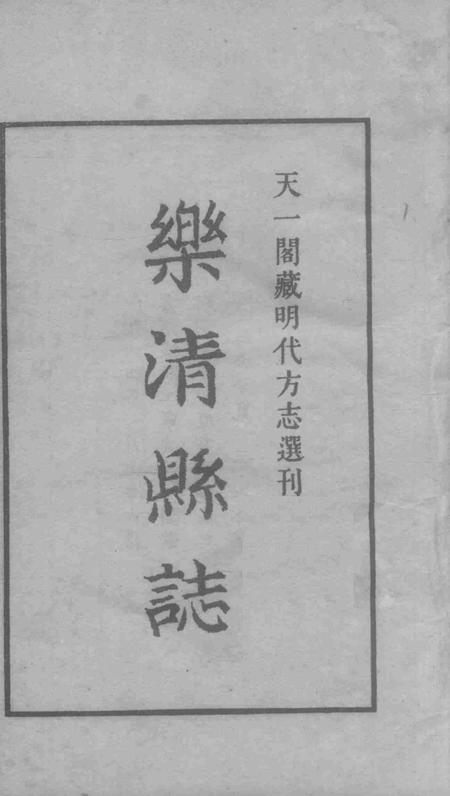 天一閣藏明代方志選刊
樂清縣誌